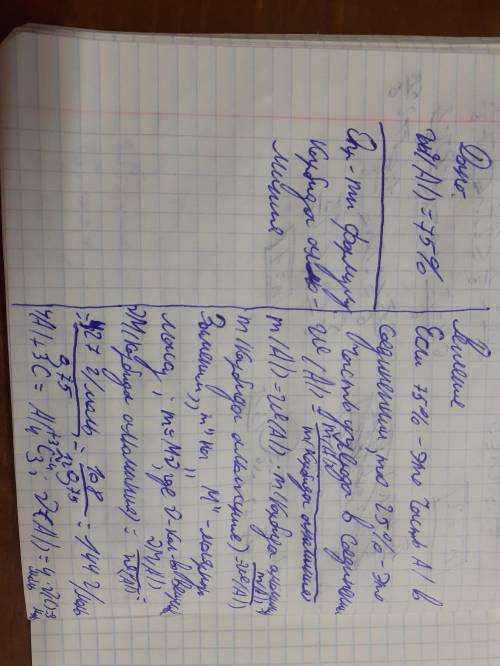 Дано:
w(Al) = 75%
Опр-ть формулу
карбида алю-
миния
Решение
Если 75% - это часть Al в
соединении, то 25% - это
часть углерода в соединении
w(Al) = m(Al) / m(карбида алюминия)
m(Al) = w(Al) · m(карбида алюминия)
m(карбида алюминия) = m(Al) / w(Al)
Заменим "m" на "M" - молярная
масса; m = Mν, где ν - кол-во вещ-ва
M(карбида алюминия) = νM(Al) / w(Al) =
= 4·27 г/моль / 0,75 = 108 / 0,75 = 144 г/моль
4Al + 3C = Al₄C₃